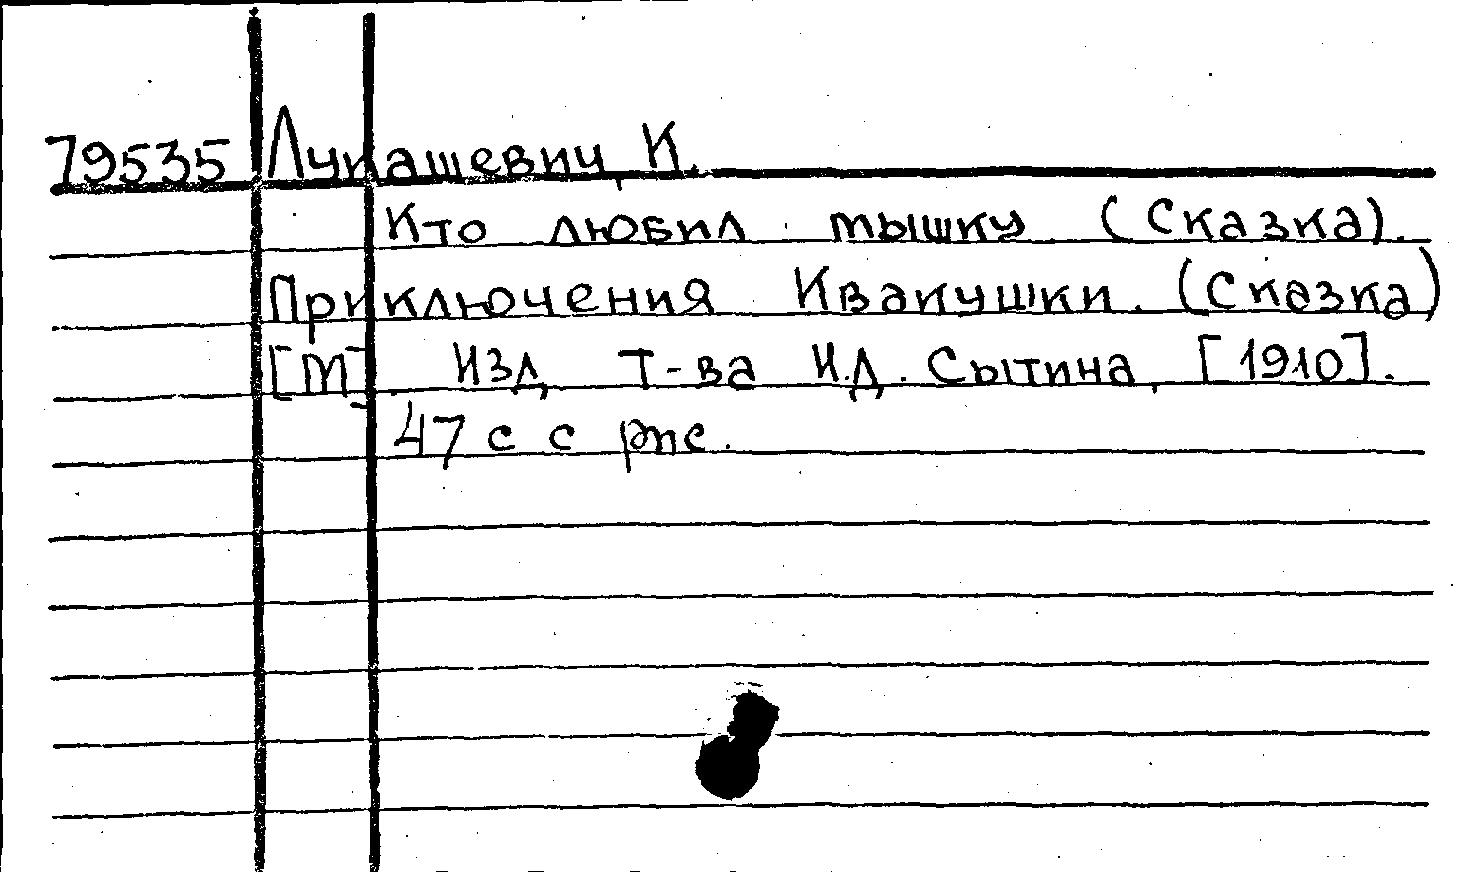 79535 Лукашевич, К.
Кто любил мышку (Сказка).
Приключения Квакушки. (Сказка)
[М]. Изд. Т-ва И.Д. Сытина, [1910].
47 с с рис.